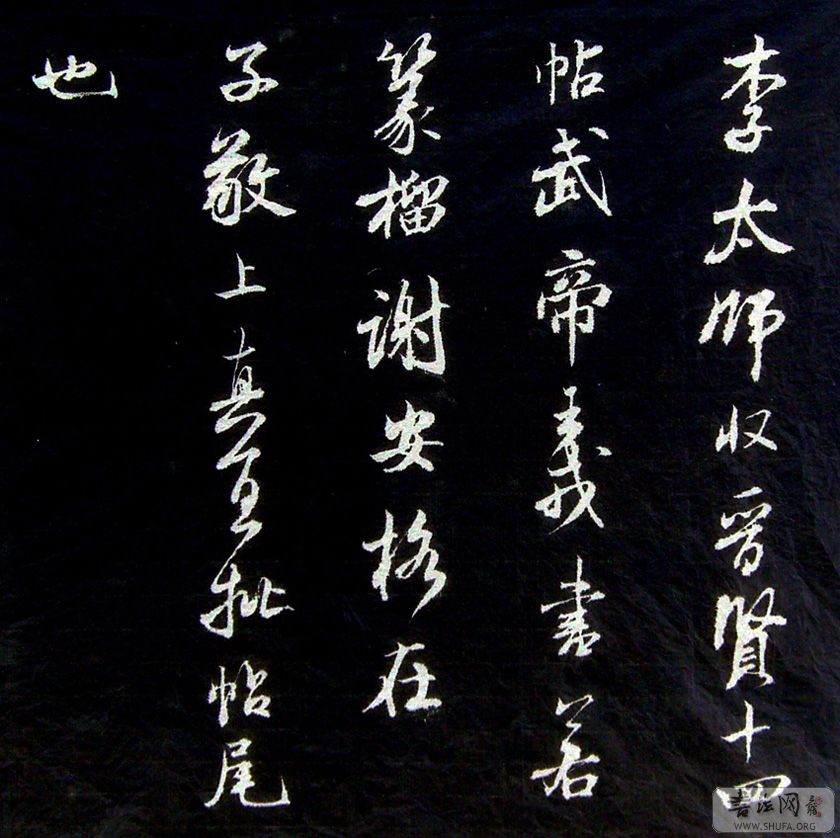 李太師收晉賢十四
帖武帝王戎書若
篆籀謝安格在
子敬上真宜批帖尾
也
書法网
WWW.SHUFA.ORG